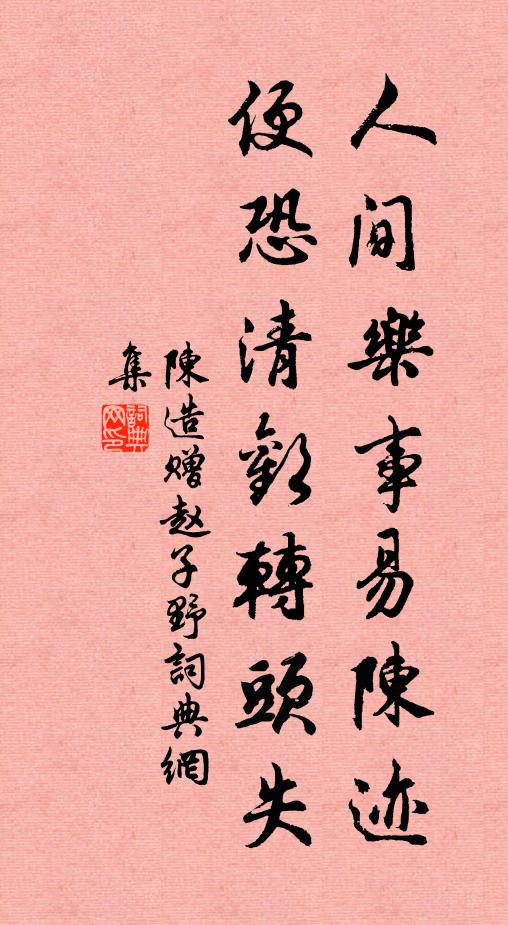 人間樂事易陳迹
便恐清歡轉頭失
陳造贈赵子野詞典網
集
詞典網印